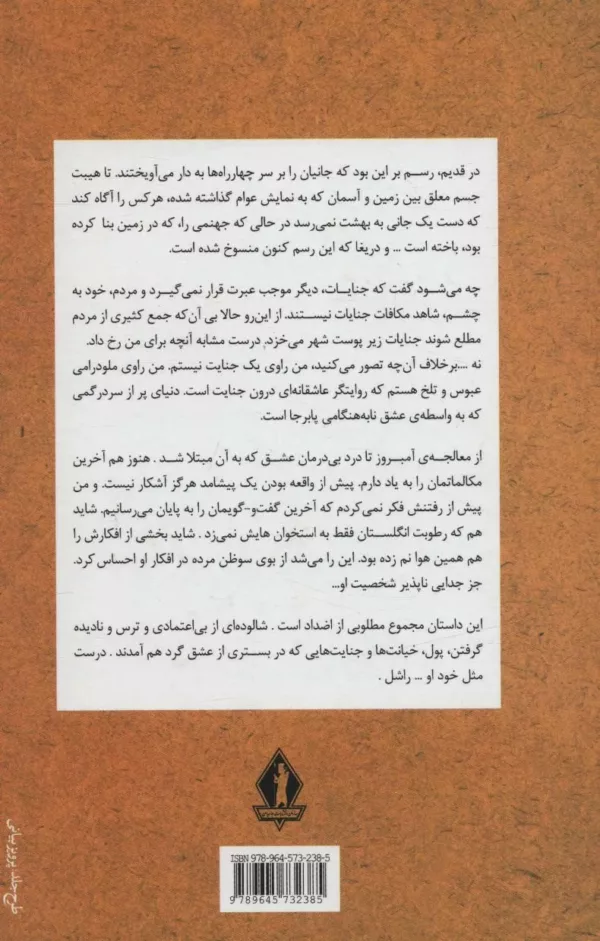 در قدیم، رسم بر این بود که جانیان را بر سر چهارراه‌ها به دار می‌آویختند. تا هیبت
جسم معلق بین زمین و آسمان که به نمایش عوام گذاشته شده، هرکس را آگاه کند
که دست یک جانی به بهشت نمی‌رسد در حالی که جهنمی را، که در زمین بنا کرده
بود، باخته است ... و دریغا که این رسم کنون منسوخ شده است.
چه می‌شود گفت که جنایات، دیگر موجب عبرت قرار نمی‌گیرد و مردم، خود به
چشم، شاهد مکافات جنایات نیستند. از این‌رو حالا بی آن‌که جمع کثیری از مردم
مطلع شوند جنایات زیر پوست شهر می‌خزد. درست مشابه آنچه برای من رخ داد.
نه ....برخلاف آن‌چه تصور می‌کنید، من راوی یک جنایت نیستم. من راوی ملودرامی
عبوس و تلخ هستم که روایتگر عاشقانه‌ای درون جنایت است. دنیای پر از سردرگمی
که به واسطه‌ی عشق نابه‌هنگامی پابرجا است.
از معالجه‌ی آمبروز تا درد بی‌درمان عشق که به آن مبتلا شد . هنوز هم آخرین
مکالماتمان را به یاد دارم. پیش از واقعه بودن یک پیشامد هرگز آشکار نیست. و من
پیش از رفتنش فکر نمی‌کردم که آخرین گفت‌و-گویمان را به پایان می‌رسانیم. شاید
هم که رطوبت انگلستان فقط به استخوان هایش نمی‌زد . شاید بخشی از افکارش را
هم همین هوا نم زده بود. این را می‌شد از بوی سوظن مرده در افکار او احساس کرد.
جز جدایی ناپذیر شخصیت او...
این داستان مجموع مطلوبی از اضداد است . شالوده‌ای از بی‌اعتمادی و ترس و نادیده
گرفتن، پول، خیانت‌ها و جنایت‌هایی که در بستری از عشق گرد هم آمدند . درست
مثل خود او ... راشل .
ISBN 978-964-573-238-5
9789645732385
طرح جلد: پرویز بیانی